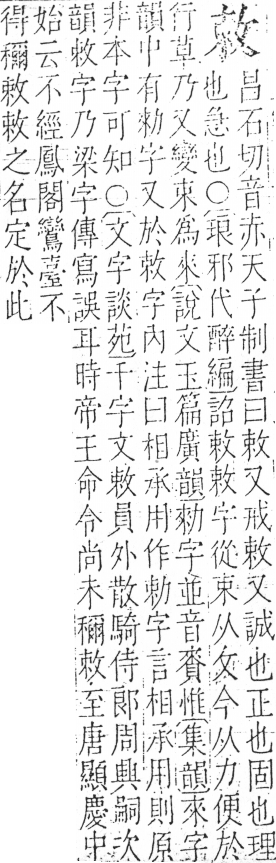 敕 昌石切音赤天子制書曰敕又戒敕又誠也正也固也理
也急也○〔琅邪代醉編〕詔敕敕字從束从攵今从力便於
行草乃又變束為來〔說文玉篇廣韻〕勑字並音賚惟〔集韻〕來字
韻中有勑字又於敕字內注曰相承用作勑字言相承用則原
非本字可知○〔文字談苑〕千字文敕員外散騎侍郎周興嗣次
韻敕字乃梁字傳寫誤耳時帝王命令尚未稱敕至唐顯慶中
始云不經鳳閣鸞臺不
得稱敕敕之名定於此